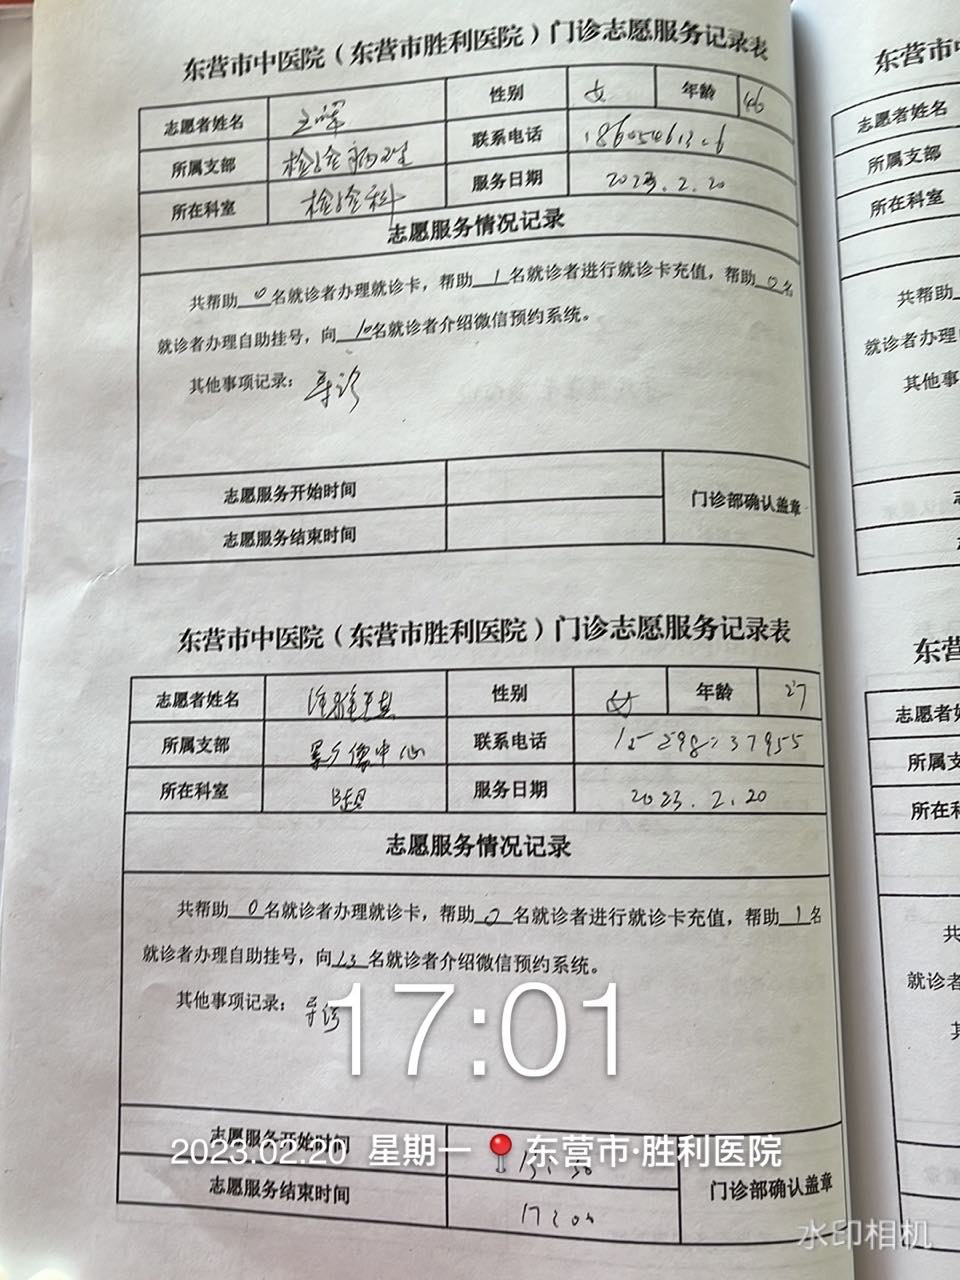 东营市中医院（东营市胜利医院）门诊志愿服务记录表
志愿者姓名 王晖 性别 女 年龄 46
所属支部 检验病理 联系电话
所在科室 检验科 服务日期 2023.2.20
志愿服务情况记录
共帮助 0 名就诊者办理就诊卡，帮助 1 名就诊者进行就诊卡充值，帮助 0 名
就诊者办理自助挂号，向 10 名就诊者介绍微信预约系统。
其他事项记录：导诊
志愿服务开始时间
门诊部确认盖章
志愿服务结束时间
东营市中医院（东营市胜利医院）门诊志愿服务记录表
志愿者姓名 性别 女 年龄 27
所属支部 影像中心 联系电话 15298737955
所在科室 B超 服务日期 2023.2.20
志愿服务情况记录
共帮助 0 名就诊者办理就诊卡，帮助 0 名就诊者进行就诊卡充值，帮助 1 名
就诊者办理自助挂号，向 13 名就诊者介绍微信预约系统。
其他事项记录：导诊
17:01
志愿服务开始时间
2023.02.20 星期一 东营市·胜利医院
门诊部确认盖章
志愿服务结束时间
水印相机
东营市中
志愿者姓名
所属支部
所在科室
共帮助
就诊者办理
其他事
东营
志愿者姓
所属支
所在科
共
就诊者
其